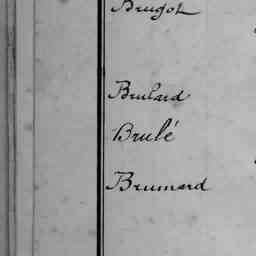 Brugot
Brulard
Brulé
Brumard